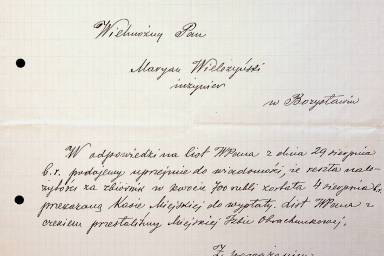 Wielmożny Pan
Maryan Wielczyński
inżynier
w Borysławiu
W odpowiedzi na list WPana z dnia 29 sierpnia
b.r. podajemy uprzejmie do wiadomości, że reszta nale-
żytości za zbiornik w kwocie 700 została 4 sierpnia b.r.
przekazaną Kasie Miejskiej do wypłaty. List WPana z
czekiem przesłaliśmy Miejskiej Izbie Obrachunkowej.
Z poważaniem